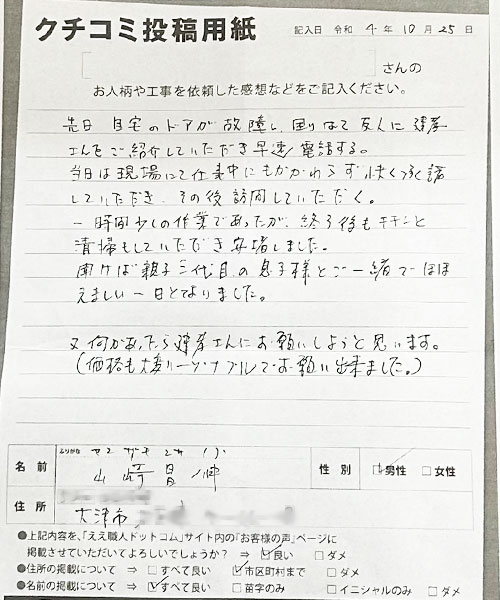 クチコミ投稿用紙
記入日 令和 4 年 10 月 25 日
さんの
お人柄や工事を依頼した感想などをご記入ください。
先日 自宅のドアが故障し、困りはて友人に建彦
さんをご紹介していただき早速電話する。
当日は現場にて仕事中にもかかわらず快く承諾
していただき、その後訪問していただく。
一時間少しの作業であったが、終了後もキチンと
清掃もしていただき安堵しました。
聞けば親子三代目の息子様とご一緒でほほ
えましい一日となりました。
又何かあったら建彦さんにお願いしようと思います。
(価格も大変リーズナブルでお願い出来ました。)
ふりがな
名前 山﨑 伸
性別 男性 女性
住所 大津市
●上記内容を、「ええ職人ドットコム」サイト内の『お客様の声』ページに
掲載させていただいてよろしいでしょうか? ⇒ 良い ダメ
●住所の掲載について ⇒ すべて良い 市区町村まで ダメ
●名前の掲載について ⇒ すべて良い 苗字のみ イニシャルのみ ダメ